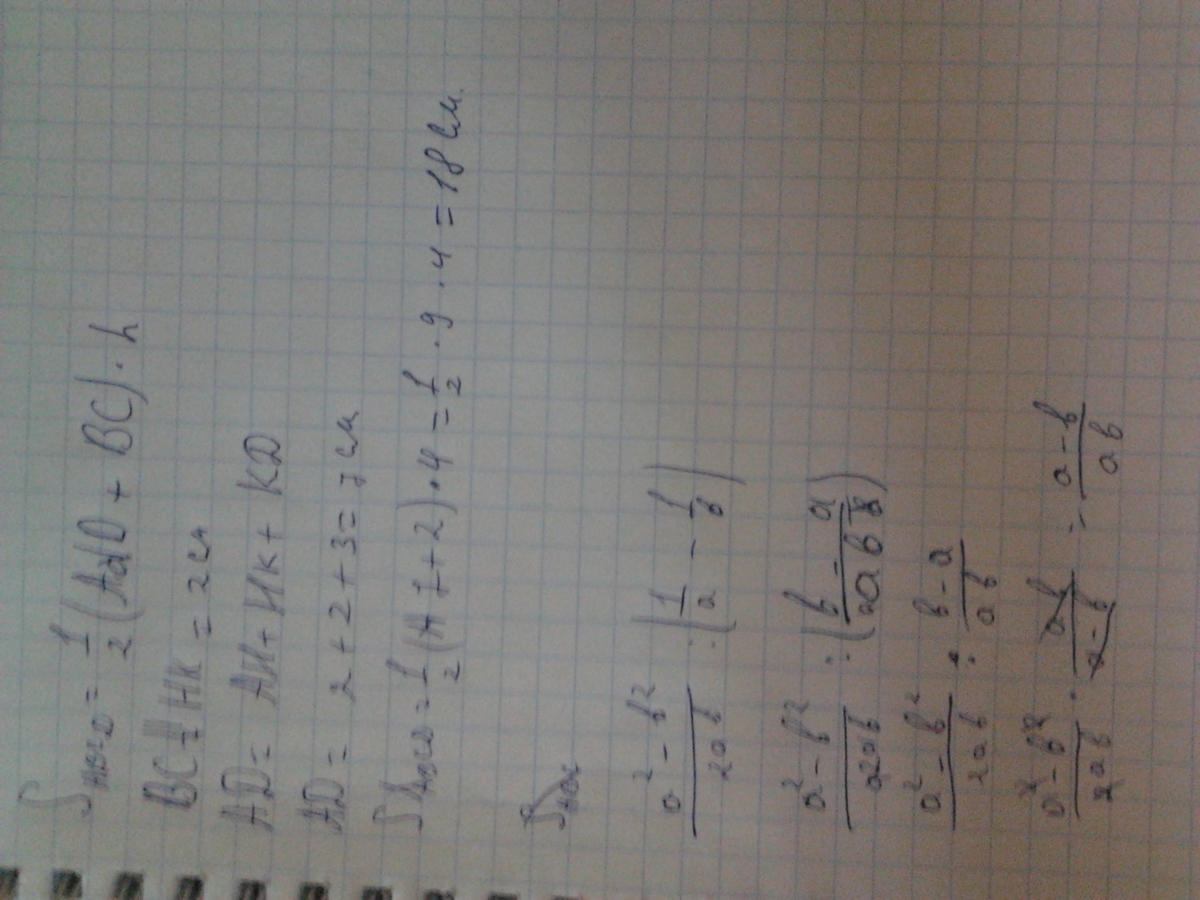 S_ABCD = 1/2 (AD + BC) · h
BC = HK = 2 см
AD = AH + HK + KD
AD = 2 + 2 + 3 = 7 см
S_ABCD = 1/2 (7 + 2) · 4 = 1/2 · 9 · 4 = 18 см.
(a² - b²)/(2ab) : (1/a - 1/b)
(a² - b²)/(2ab) : (b - a)/(ab)
(a² - b²)/(2ab) : (b - a)/(ab)
(a² - b²)/(2ab) · (ab)/(a - b) : (a - b)/(ab)